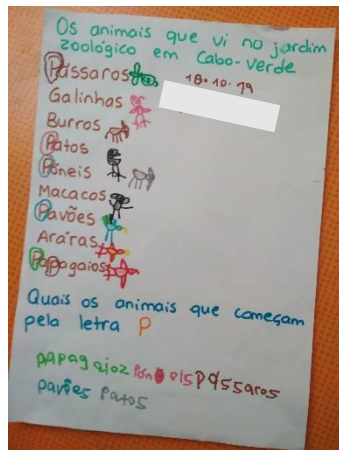 Os animais que vi no jardim
zoológico em Cabo-Verde
18.10.19
Pássaros
Galinhas
Burros
Patos
Póneis
Macacos
Pavões
Araras
Papagaios
Quais os animais que começam
pela letra P
papagaioz póneis pássaros
pavões patos